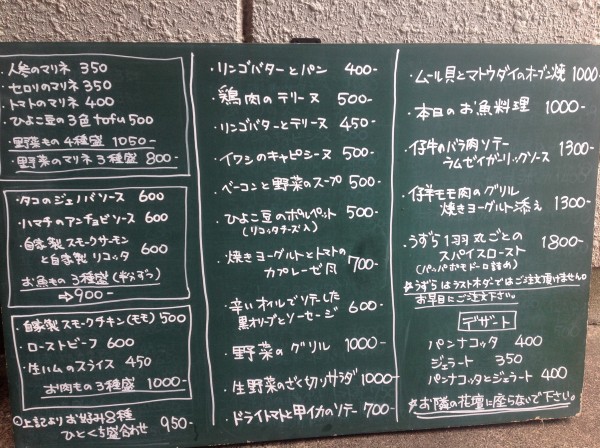 ・人参のマリネ 350
・セロリのマリネ 350
・トマトのマリネ 400
・ひよこ豆の3色tofu 500
・野菜もの4種盛 1050-
・野菜のマリネ3種盛 800-
・タコのジェノバソース 600
・ハマチのアンチョビソース 600
・自家製スモークサーモン
と自家製リコッタ 600
お魚もの3種盛(半分ずつ)
⇒900-
・自家製スモークチキン(モモ) 500
・ローストビーフ 600
・生ハムのスライス 450
お肉もの3種盛 1000-
◎上記よりお好み8種
ひとくち盛合わせ 950-
・リンゴバターとパン 400-
・鶏肉のテリーヌ 500-
・リンゴバターとテリーヌ 450-
・イワシのキャピシーヌ 500-
・ベーコンと野菜のスープ 500-
・ひよこ豆のポルペット 500-
(リコッタチーズ入)
・焼きヨーグルトとトマトの
カプレーゼ風 700-
・辛いオイルでソテした
黒オリーブとソーセージ 600-
・野菜のグリル 1000-
・生野菜のざく切りサラダ 1000-
・ドライトマトと甲イカのソテー 700-
・ムール貝とマトウダイのオーブン焼 1000-
・本日のお魚料理 1000-
・仔牛のバラ肉ソテー
ラムゼイガーリックソース 1300-
・仔羊モモ肉のグリル
焼きヨーグルト添え 1300-
・うずら1羽丸ごとの
スパイスロースト 1800-
(パッパポモドーロ詰め)
※うずらはラストオーダーではご注文頂けません。
お早目にご注文下さい。
デザート
パンナコッタ 400
ジェラート 350
パンナコッタとジェラート 400
※お隣の花壇に座らないで下さい。